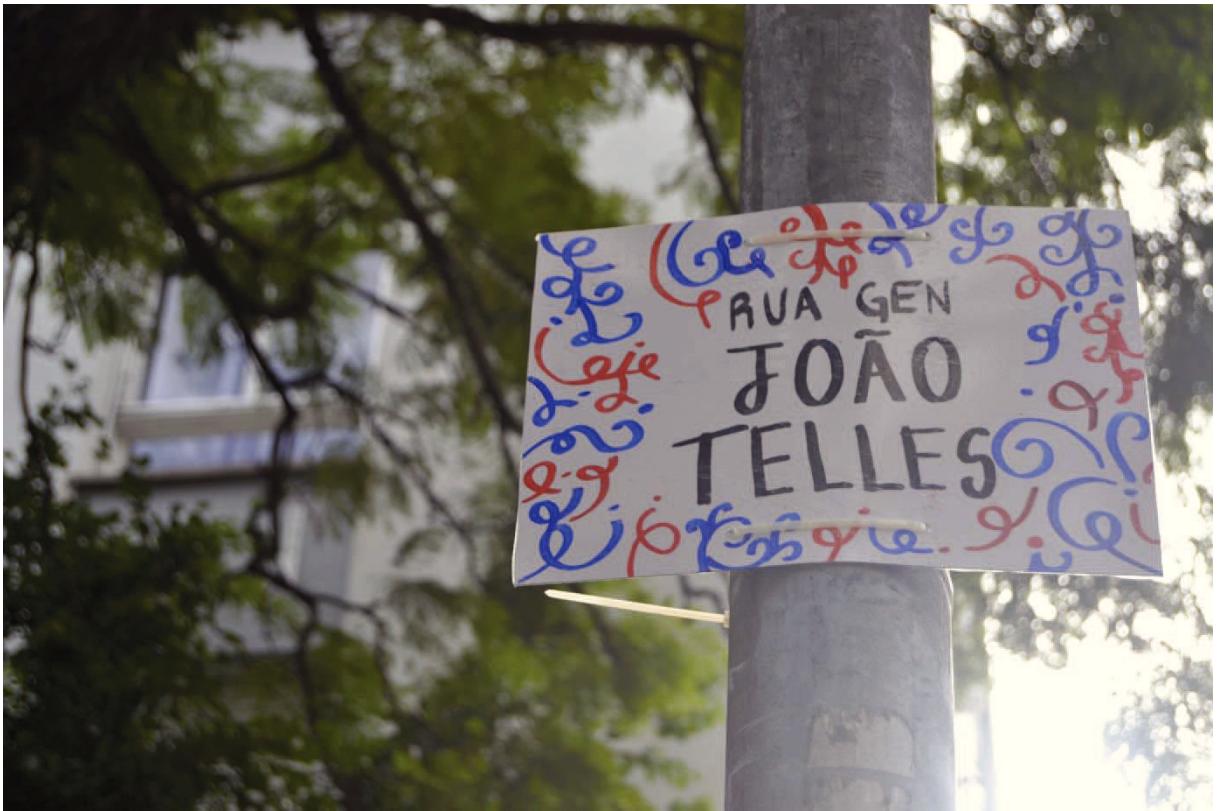 RUA GEN
JOÃO
TELLES